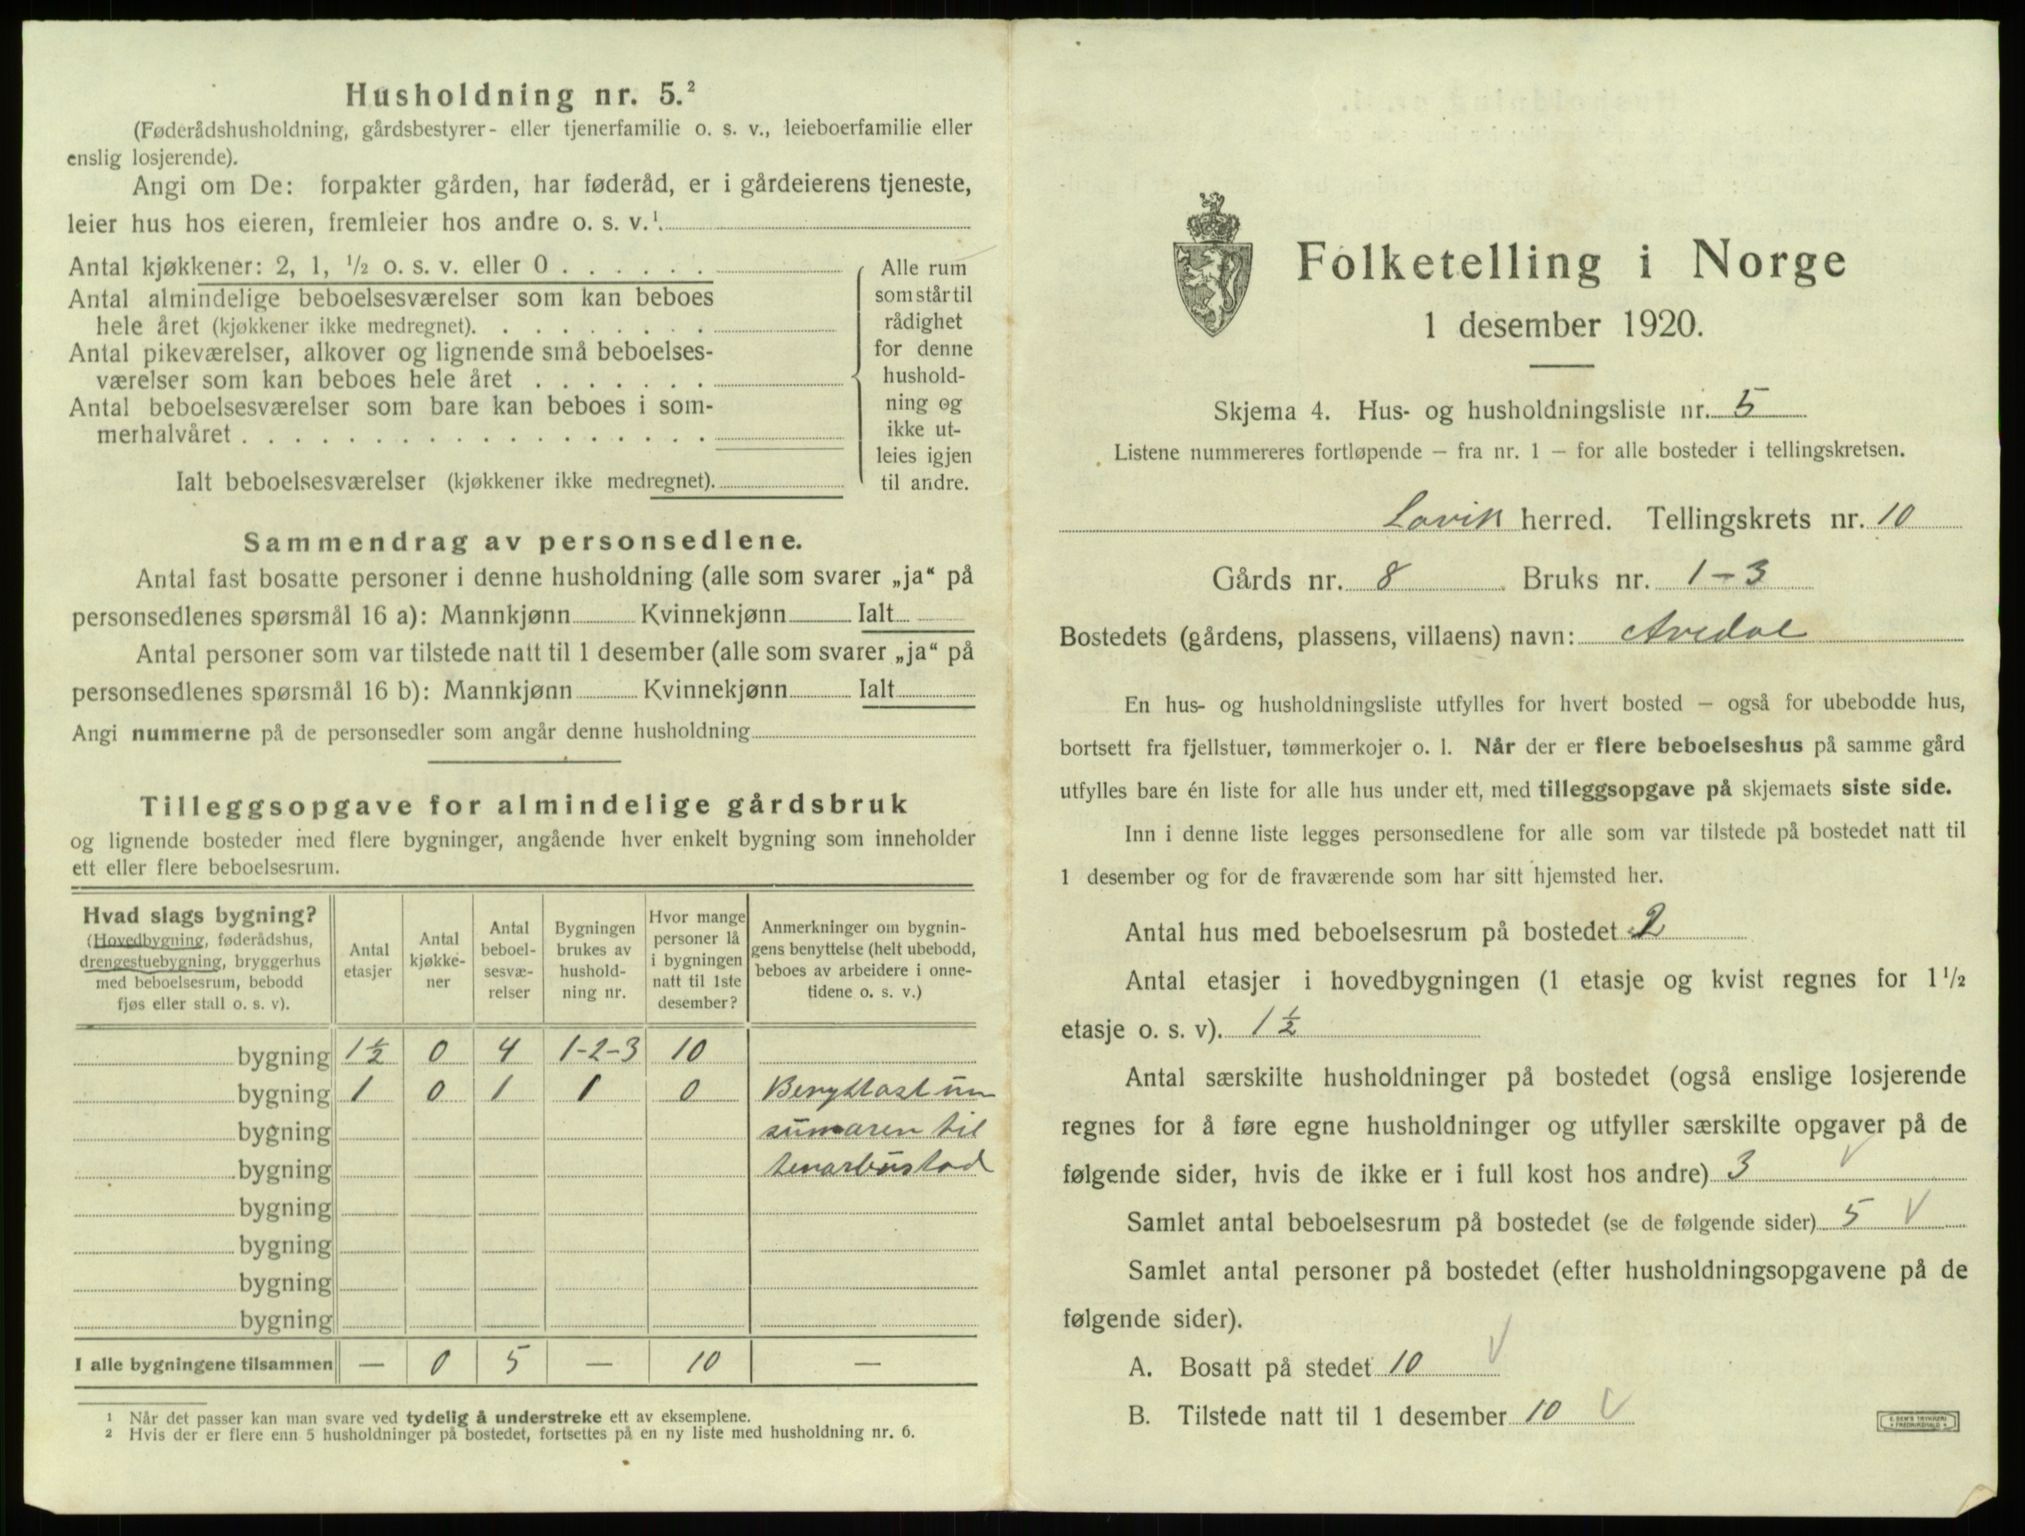 Husholdning nr. 5.²
(Føderådshusholdning, gårdsbestyrer- eller tjenerfamilie o. s. v., leieboerfamilie eller
enslig losjerende).
Angi om De: forpakter gården, har føderåd, er i gårdeierens tjeneste,
leier hus hos eieren, fremleier hos andre o. s. v.¹
Antal kjøkkener: 2, 1, ½ o. s. v. eller 0 . . . . . .
Antal almindelige beboelsesværelser som kan beboes
hele året (kjøkkener ikke medregnet). . . . . . . . .
Antal pikeværelser, alkover og lignende små beboelses-
værelser som kan beboes hele året . . . . . . .
Antal beboelsesværelser som bare kan beboes i som-
merhalvåret . . . . . . . . . . . . . . . . . .
Ialt beboelsesværelser (kjøkkener ikke medregnet).
Alle rum
som står til
rådighet
for denne
hushold-
ning og
ikke ut-
leies igjen
til andre.
Sammendrag av personsedlene.
Antal fast bosatte personer i denne husholdning (alle som svarer „ja“ på
personsedlenes spørsmål 16 a): Mannkjønn Kvinnekjønn Ialt
Antal personer som var tilstede natt til 1 desember (alle som svarer „ja“ på
personsedlenes spørsmål 16 b): Mannkjønn Kvinnekjønn Ialt
Angi nummerne på de personsedler som angår denne husholdning
Tilleggsopgave for almindelige gårdsbruk
og lignende bosteder med flere bygninger, angående hver enkelt bygning som inneholder
ett eller flere beboelsesrum.
Hvad slags bygning?
(Hovedbygning, føderådshus,
drengestuebygning, bryggerhus
med beboelsesrum, bebodd
fjøs eller stall o. s. v).
Antal
etasjer
Antal
kjøkke-
ner
Antal
beboel-
sesvæ-
relser
Bygningen
brukes av
hushold-
ning nr.
Hvor mange
personer lå
i bygningen
natt til 1ste
desember?
Anmerkninger om bygnin-
gens benyttelse (helt ubebodd,
beboes av arbeidere i onne-
tidene o. s. v.)
bygning 1½ 0 4 1-2-3 10
bygning 1 0 1 1 0 Benyttast um
bygning sumaren til
bygning tenarbustad
bygning
bygning
bygning
bygning
I alle bygningene tilsammen — 0 5 — 10 —
¹ Når det passer kan man svare ved tydelig å understreke ett av eksemplene.
² Hvis der er flere enn 5 husholdninger på bostedet, fortsettes på en ny liste med husholdning nr. 6.
Folketelling i Norge
1 desember 1920.
Skjema 4. Hus- og husholdningsliste nr. 5
Listene nummereres fortløpende – fra nr. 1 – for alle bosteder i tellingskretsen.
Lavik herred. Tellingskrets nr. 10
Gårds nr. 8 Bruks nr. 1-3
Bostedets (gårdens, plassens, villaens) navn: Avedal
En hus- og husholdningsliste utfylles for hvert bosted – også for ubebodde hus,
bortsett fra fjellstuer, tømmerkojer o. l. Når der er flere beboelseshus på samme gård
utfylles bare én liste for alle hus under ett, med tilleggsopgave på skjemaets siste side.
Inn i denne liste legges personsedlene for alle som var tilstede på bostedet natt til
1 desember og for de fraværende som har sitt hjemsted her.
Antal hus med beboelsesrum på bostedet 2
Antal etasjer i hovedbygningen (1 etasje og kvist regnes for 1½
etasje o. s. v). 1½
Antal særskilte husholdninger på bostedet (også enslige losjerende
regnes for å føre egne husholdninger og utfyller særskilte opgaver på de
følgende sider, hvis de ikke er i full kost hos andre) 3
Samlet antal beboelsesrum på bostedet (se de følgende sider) 5
Samlet antal personer på bostedet (efter husholdningsopgavene på de
følgende sider).
A. Bosatt på stedet 10
B. Tilstede natt til 1 desember 10